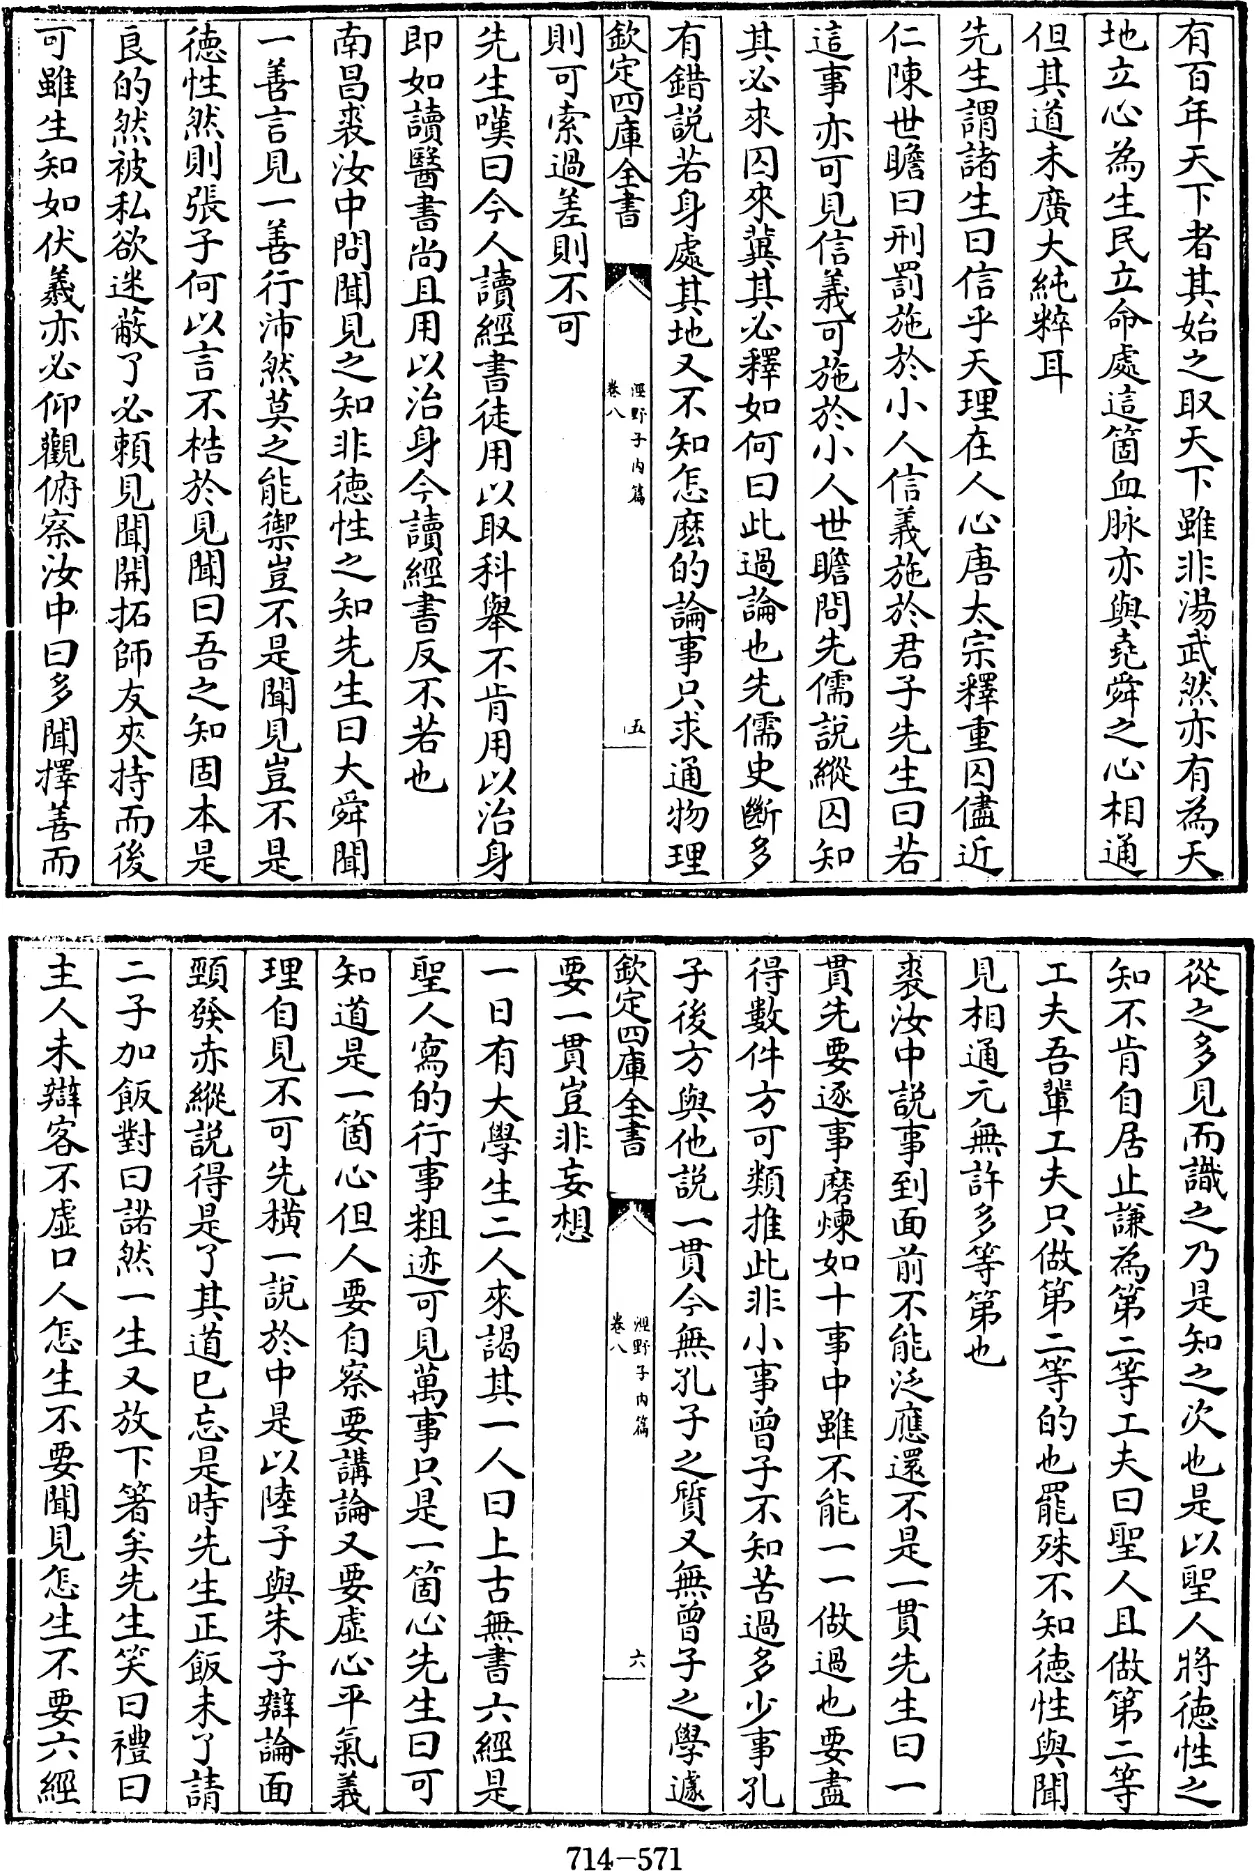 有百年天下者其始之取天下雖非湯武然亦有為天
地立心為生民立命處這箇血脉亦與堯舜之心相通
但其道未廣大純粹耳
先生謂諸生曰信乎天理在人心唐太宗釋重囚儘近
仁陳世瞻曰刑罰施於小人信義施於君子先生曰若
這事亦可見信義可施於小人世瞻問先儒說縱囚知
其必來囚來冀其必釋如何曰此過論也先儒史斷多
有錯說若身處其地又不知怎麽的論事只求通物理
欽定四庫全書
涇野子内篇
卷八
五
則可索過差則不可
先生嘆曰今人讀經書徒用以取科舉不肯用以治身
即如讀醫書尚且用以治身今讀經書反不若也
南昌裘汝中問聞見之知非德性之知先生曰大舜聞
一善言見一善行沛然莫之能禦豈不是聞見豈不是
德性然則張子何以言不梏於見聞曰吾之知固本是
良的然被私欲迷蔽了必賴見聞開拓師友夾持而後
可雖生知如伏羲亦必仰觀俯察汝中曰多聞擇善而
從之多見而識之乃是知之次也是以聖人將德性之
知不肯自居止謙為第二等工夫曰聖人且做第二等
工夫吾輩工夫只做第二等的也罷殊不知德性與聞
見相通元無許多等第也
裘汝中說事到面前不能泛應還不是一貫先生曰一
貫先要逐事磨煉如十事中雖不能一一做過也要盡
得數件方可類推此非小事曾子不知苦過多少事孔
子後方與他說一貫今無孔子之質又無曾子之學遽
欽定四庫全書
涇野子内篇
卷八
六
要一貫豈非妄想
一日有大學生二人來謁其一人曰上古無書六經是
聖人寫的行事粗迹可見萬事只是一箇心先生曰可
知道是一箇心但人要自察要講論又要虛心平氣義
理自見不可先橫一說於中是以陸子與朱子辯論面
頸發赤縱說得是了其道已忘是時先生正飯未了請
二子加飯對曰諾然一生又放下箸矣先生笑曰禮曰
主人未辯客不虛口人怎生不要聞見怎生不要六經
714-571